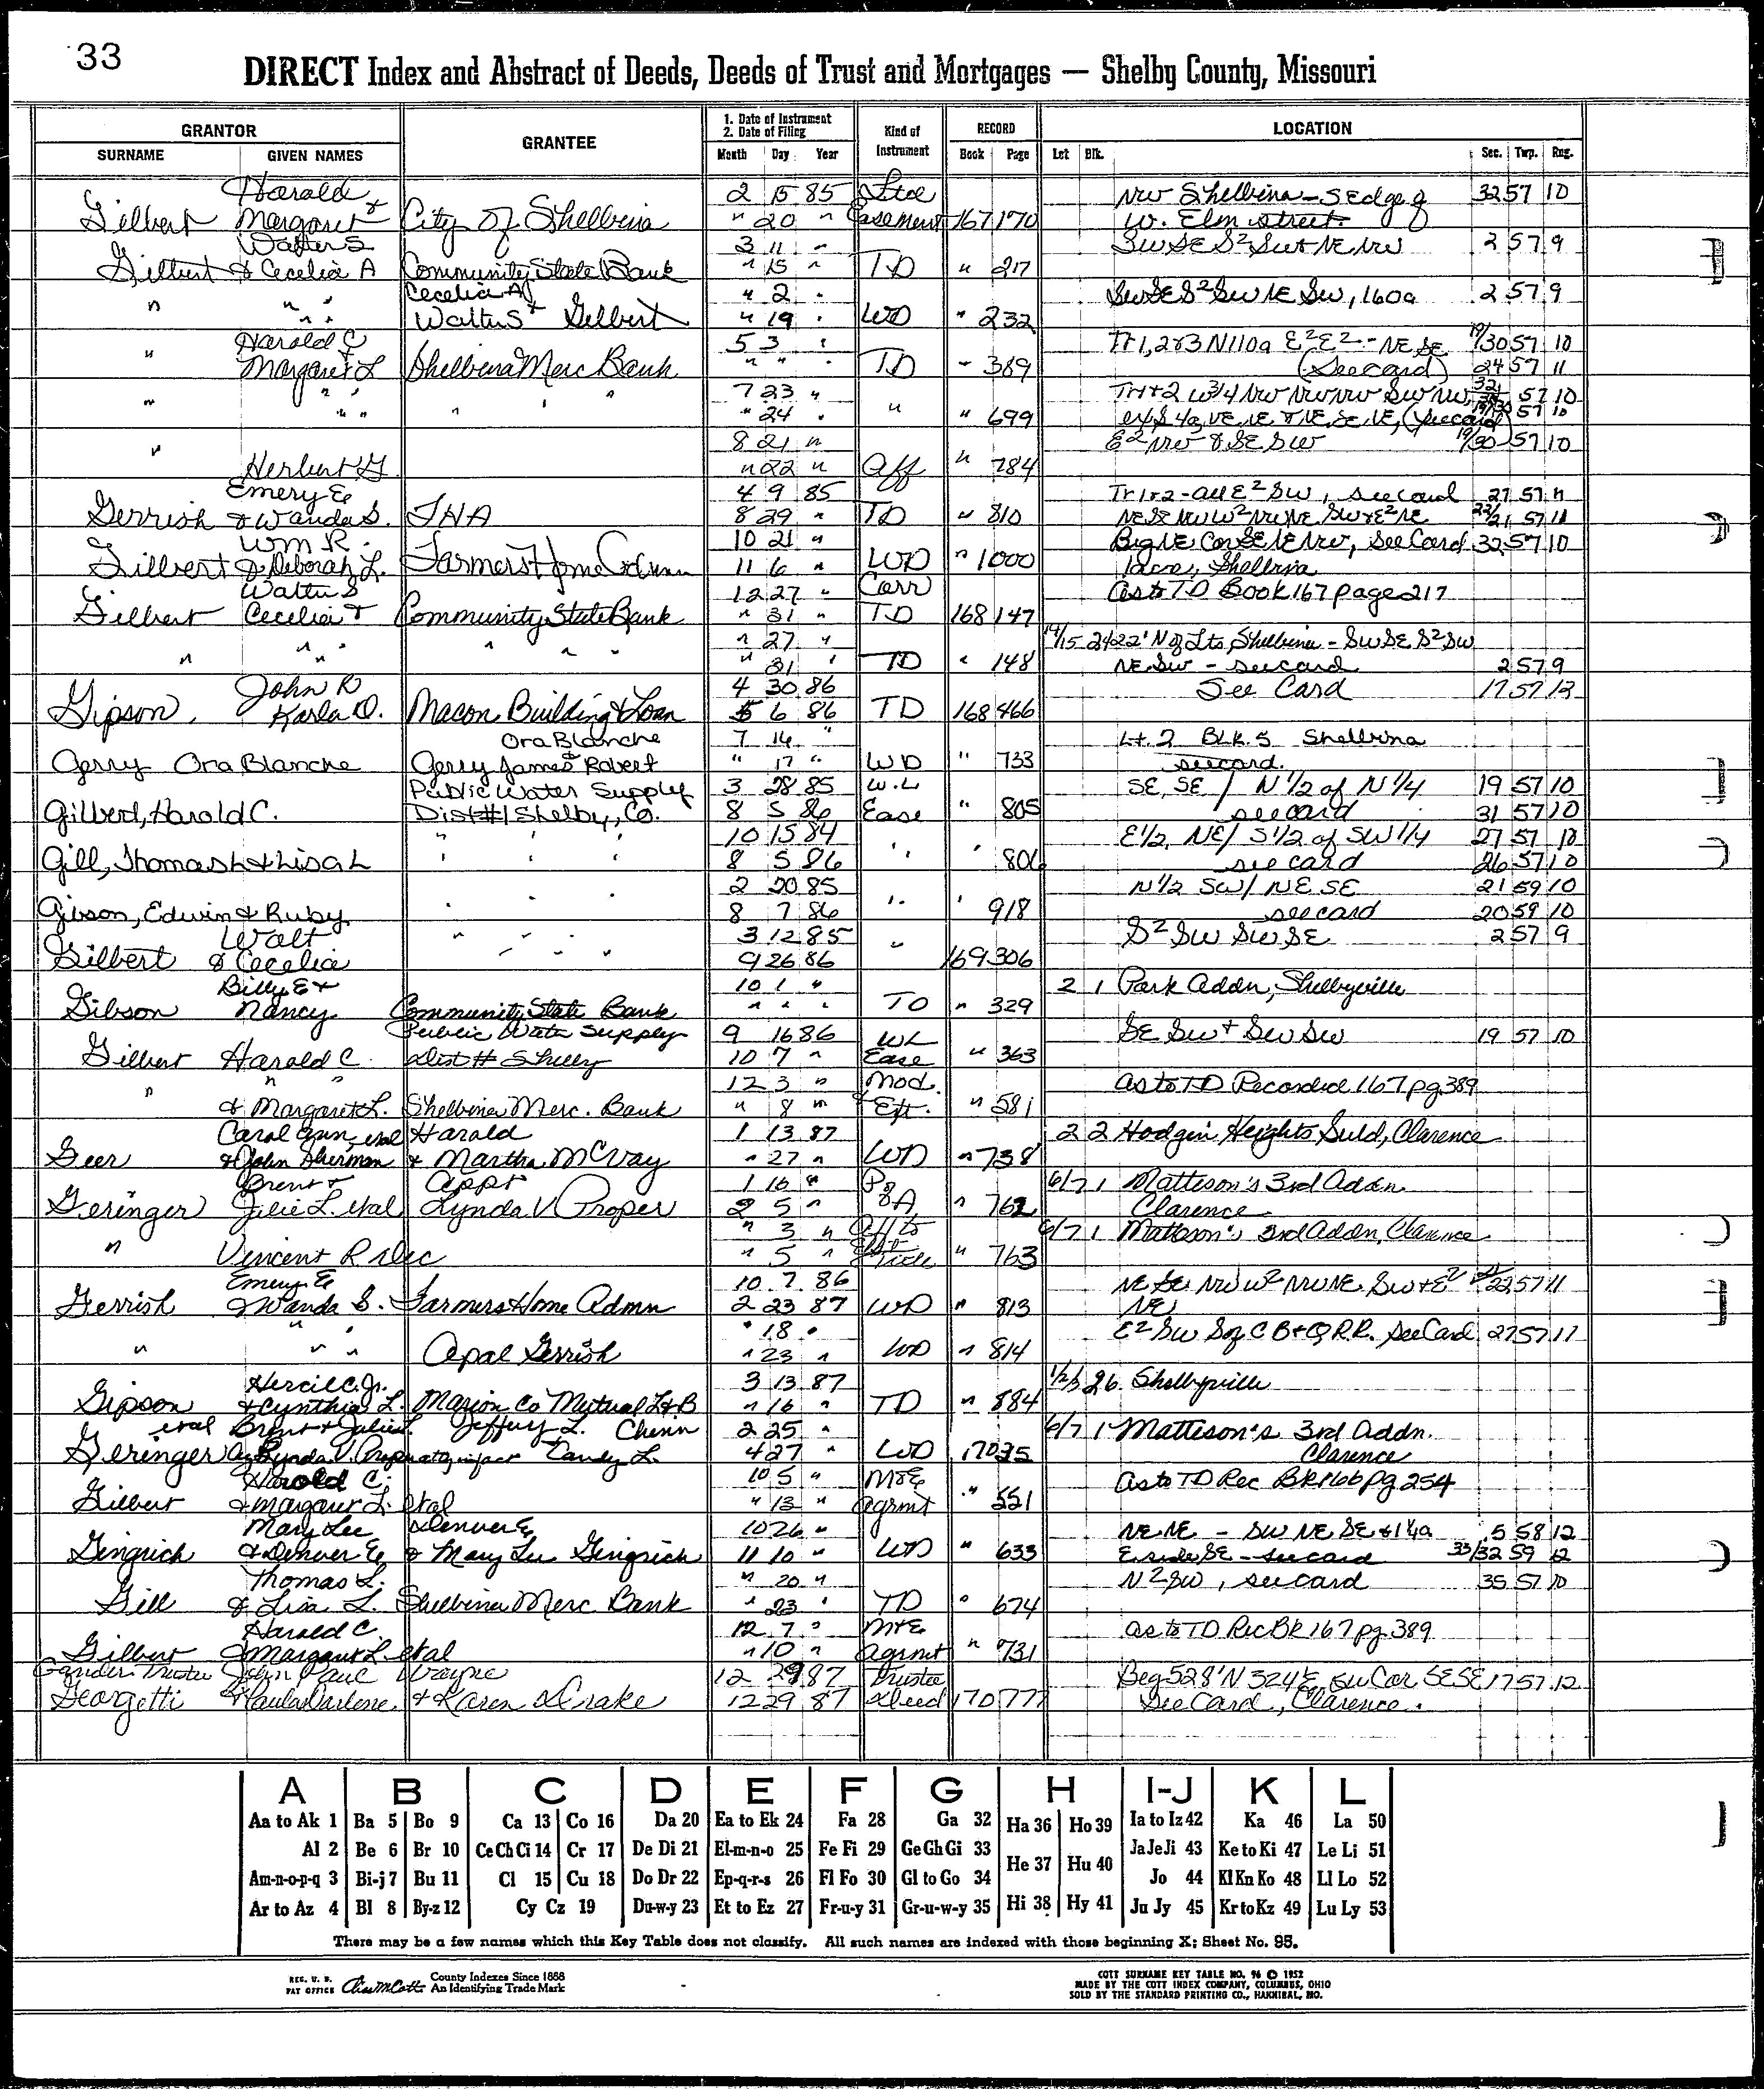 33
DIRECT Index and Abstract of Deeds, Deeds of Trust and Mortgages — Shelby County, Missouri
GRANTOR GRANTEE 1. Date of Instrument 2. Date of Filing Kind of Instrument RECORD LOCATION
SURNAME GIVEN NAMES Month Day Year Book Page Lot Blk. Sec. Twp. Rng.
Harold 2 15 85 NW Shelbina - S Edge of 32 57 10
Gilbert Margaret & City of Shelbina " 20 " Easement 167 170 W. Elm street
Walter S 3 11 " SW SE S² SW & NE NW 2 57 9
Gilbert & Cecelia A Community State Bank " 15 " TD " 217
Cecelia A " 2 " SW SE S² SW NE SW, 160a 2 57 9
" " " Walter S & Gilbert " 19 " WD " 232
Harold C 5 3 " Tr 1, 2 & 3 N 110a E² E² - NE SE 19/30 57 10
" Margaret L Shelbina Merc Bank " " " TD " 389 (See card) 24 57 11
" " 7 23 " Tr 1 + 2 W 3/4 NW NW NW SW NW 57 10
" " " " " " " 24 " " " 699 ex S 4a, NE NE & NE SE NE, (see card) 57 10
" 8 21 " E² NW & SE SW 19/30 57 10
Herbert G " 22 " Aff " 784
Emery E 4 9 85 Tr 1 & 2 - all E² SW, see card 27 57 11
Gerrish & Wanda S. FHA 8 29 " TD " 810 NE SE NW W² NW NE SW & E² NE 22/21 57 11
Wm R. 10 21 " Beg NE Cor SE NE NW, See Card 32 57 10
Gilbert & Deborah L. Farmers Home Admn 11 6 " WD " 1000 Shelbina
Walter S 12 27 " Corr As to TD Book 167 page 217
Gilbert Cecelia & Community State Bank " 31 " TD 168 147
" " " 27 " 14/15 24 22' N of Lts, Shelbina - SW SE S² SW
" " " " " " 31 " TD " 148 NE SW - see card 2 57 9
John R 4 30 86 See Card 17 57 12
Gipson, Karla D. Macon Building & Loan 5 6 86 TD 168 466
Ora Blanche 7 14 " Lt. 2 Blk. 5 Shelbina
Gerry Ora Blanche Gerry James & Robert " 17 " WD " 733 see card.
Public Water Supply 3 28 85 W.L SE, SE / N 1/2 of N 1/4 19 57 10
Gilbert, Harold C. Dist #1 Shelby, Co. 8 5 86 Ease " 805 see card 31 57 10
10 15 84 E 1/2, NE / S 1/2 of SW 1/4 27 57 10
Gill, Thomas L & Lisa L " " " 8 5 86 " " 806 see card 26 57 10
2 20 85 N 1/2 SW / NE SE 21 59 10
Gibson, Edwin & Ruby " " " 8 7 86 " " 918 see card 20 59 10
Walt " " " " 3 12 85 S² SW SW SE 2 57 9
Gilbert & Cecelia " " " " 9 26 86 " 169 306
Billy E & 10 1 " 2 1 Park Addn, Shelbyville
Gibson Nancy Community State Bank " " " TD " 329
Public Water Supply 9 16 86 WL SE SW + SW SW 19 57 10
Gilbert Harold C. Dist # Shelby 10 7 " Ease " 363
" " " 12 3 " Mod. As to TD Recorded 167 pg 389
& Margaret L. Shelbina Merc. Bank " 8 " & Ext. " 581
Carol Ann, etal Harold 1 13 87 2 2 Hodgin Heights Subd, Clarence
Geer & John Sherman & Martha McVay " 27 " WD " 738
Brent & Appt 1 16 " 6/7 1 Matteson's 3rd Addn
Geringer Julie L. etal Lynda V Proper 2 5 " PgA " 762 Clarence
" 3 " Aff to 6/7 1 Matteson's 3rd Addn, Clarence
" Vincent R Dec " 5 " Title " 763
Emery E 10 7 86 NE SE NW W² NW NE SW + E² 22 57 11
Gerrish & Wanda S. Farmers Home Admn 2 23 87 WD " 813 NE
" " " 18 " E² SW S of C B & Q R.R. See Card 27 57 11
" " " Opal Gerrish " 23 " WD " 814
Hercil C. Jr. 3 13 87 1/2/3 26 Shelbyville
Gipson & Cynthia L. Marion Co Mutual L & B " 16 " TD " 884
etal Brent & Julie L. Jeffery L. Chinn 2 25 " 6/7 1 Matteson's 3rd Addn.
Geringer by Lynda V. Proper atty in fact Candy L. 4 27 " WD 170 35 Clarence
Harold C. 10 5 " M&E As to TD Rec Bk 166 pg 254
Gilbert & Margaret L. etal " 13 " Agrmt " 551
Mary Lee Denver E 10 26 " NE NE - SW NE SE & 1 1/4a 5 58 12
Gingrich & Denver E & Mary Lee Gingrich 11 10 " WD " 633 E side SE - see card 33/32 59 12
Thomas L. " 20 " N² SW, see card 35 57 10
Gill & Lisa L. Shelbina Merc Bank " 23 " TD " 674
Harold C. 12 7 " M&E As to TD Rec Bk 167 pg 389
Gilbert & Margaret L. etal " 10 " Agrmt " 731
Gander Trustee John Paul Wayne 12 29 87 Trustee Beg 528' N 324' E SW Cor SE SE 17 57 12
Georgetti & Paula Darlene & Karen Drake 12 29 87 Deed 170 777 See Card, Clarence.
A B C D E F G H I-J K L
Aa to Ak 1 Ba 5 Bo 9 Ca 13 Co 16 Da 20 Ea to Ek 24 Fa 28 Ga 32 Ha 36 Ho 39 Ia to Iz 42 Ka 46 La 50
Al 2 Be 6 Br 10 Ce Ch Ci 14 Cr 17 De Di 21 El-m-n-o 25 Fe Fi 29 Ge Gh Gi 33 He 37 Hu 40 Ja Je Ji 43 Ke to Ki 47 Le Li 51
Am-n-o-p-q 3 Bi-j 7 Bu 11 Cl 15 Cu 18 Do Dr 22 Ep-q-r-s 26 Fl Fo 30 Gl to Go 34 Jo 44 Kl Kn Ko 48 Ll Lo 52
Ar to Az 4 Bl 8 By-z 12 Cy Cz 19 Du-w-y 23 Et to Ez 27 Fr-u-y 31 Gr-u-w-y 35 Hi 38 Hy 41 Ju Jy 45 Kr to Kz 49 Lu Ly 53
There may be a few names which this Key Table does not classify. All such names are indexed with those beginning X; Sheet No. 95.
REG. U. S. PAT OFFICE County Indexes Since 1888 An Identifying Trade Mark
COTT SURNAME KEY TABLE NO. 96 © 1952
MADE BY THE COTT INDEX COMPANY, COLUMBUS, OHIO
SOLD BY THE STANDARD PRINTING CO., HANNIBAL, MO.